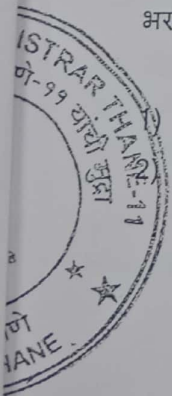 भर
ISTRAR THANE-11
णे-११ यांची मुद्रा
णे
HANE